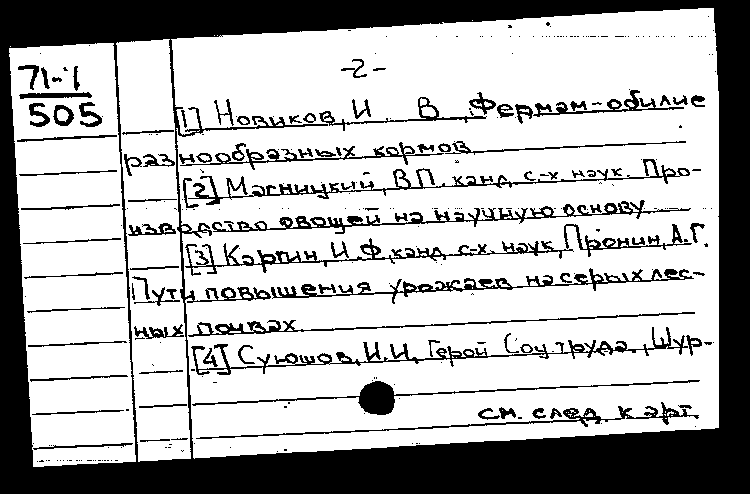 71-1
505
-2-
[1] Новиков, И В. Фермам-обилие
разнообразных кормов
[2] Магницкий, В.П. канд. с-х. наук. Про-
изводство овощей на научную основу
[3] Каргин, И.Ф. канд. с-х. наук, Пронин, А.Г.
Пути повышения урожаев на серых лес-
ных почвах
[4] Суюшов, И.И. Герой Соц.труда., Шур-
см. след. карт.